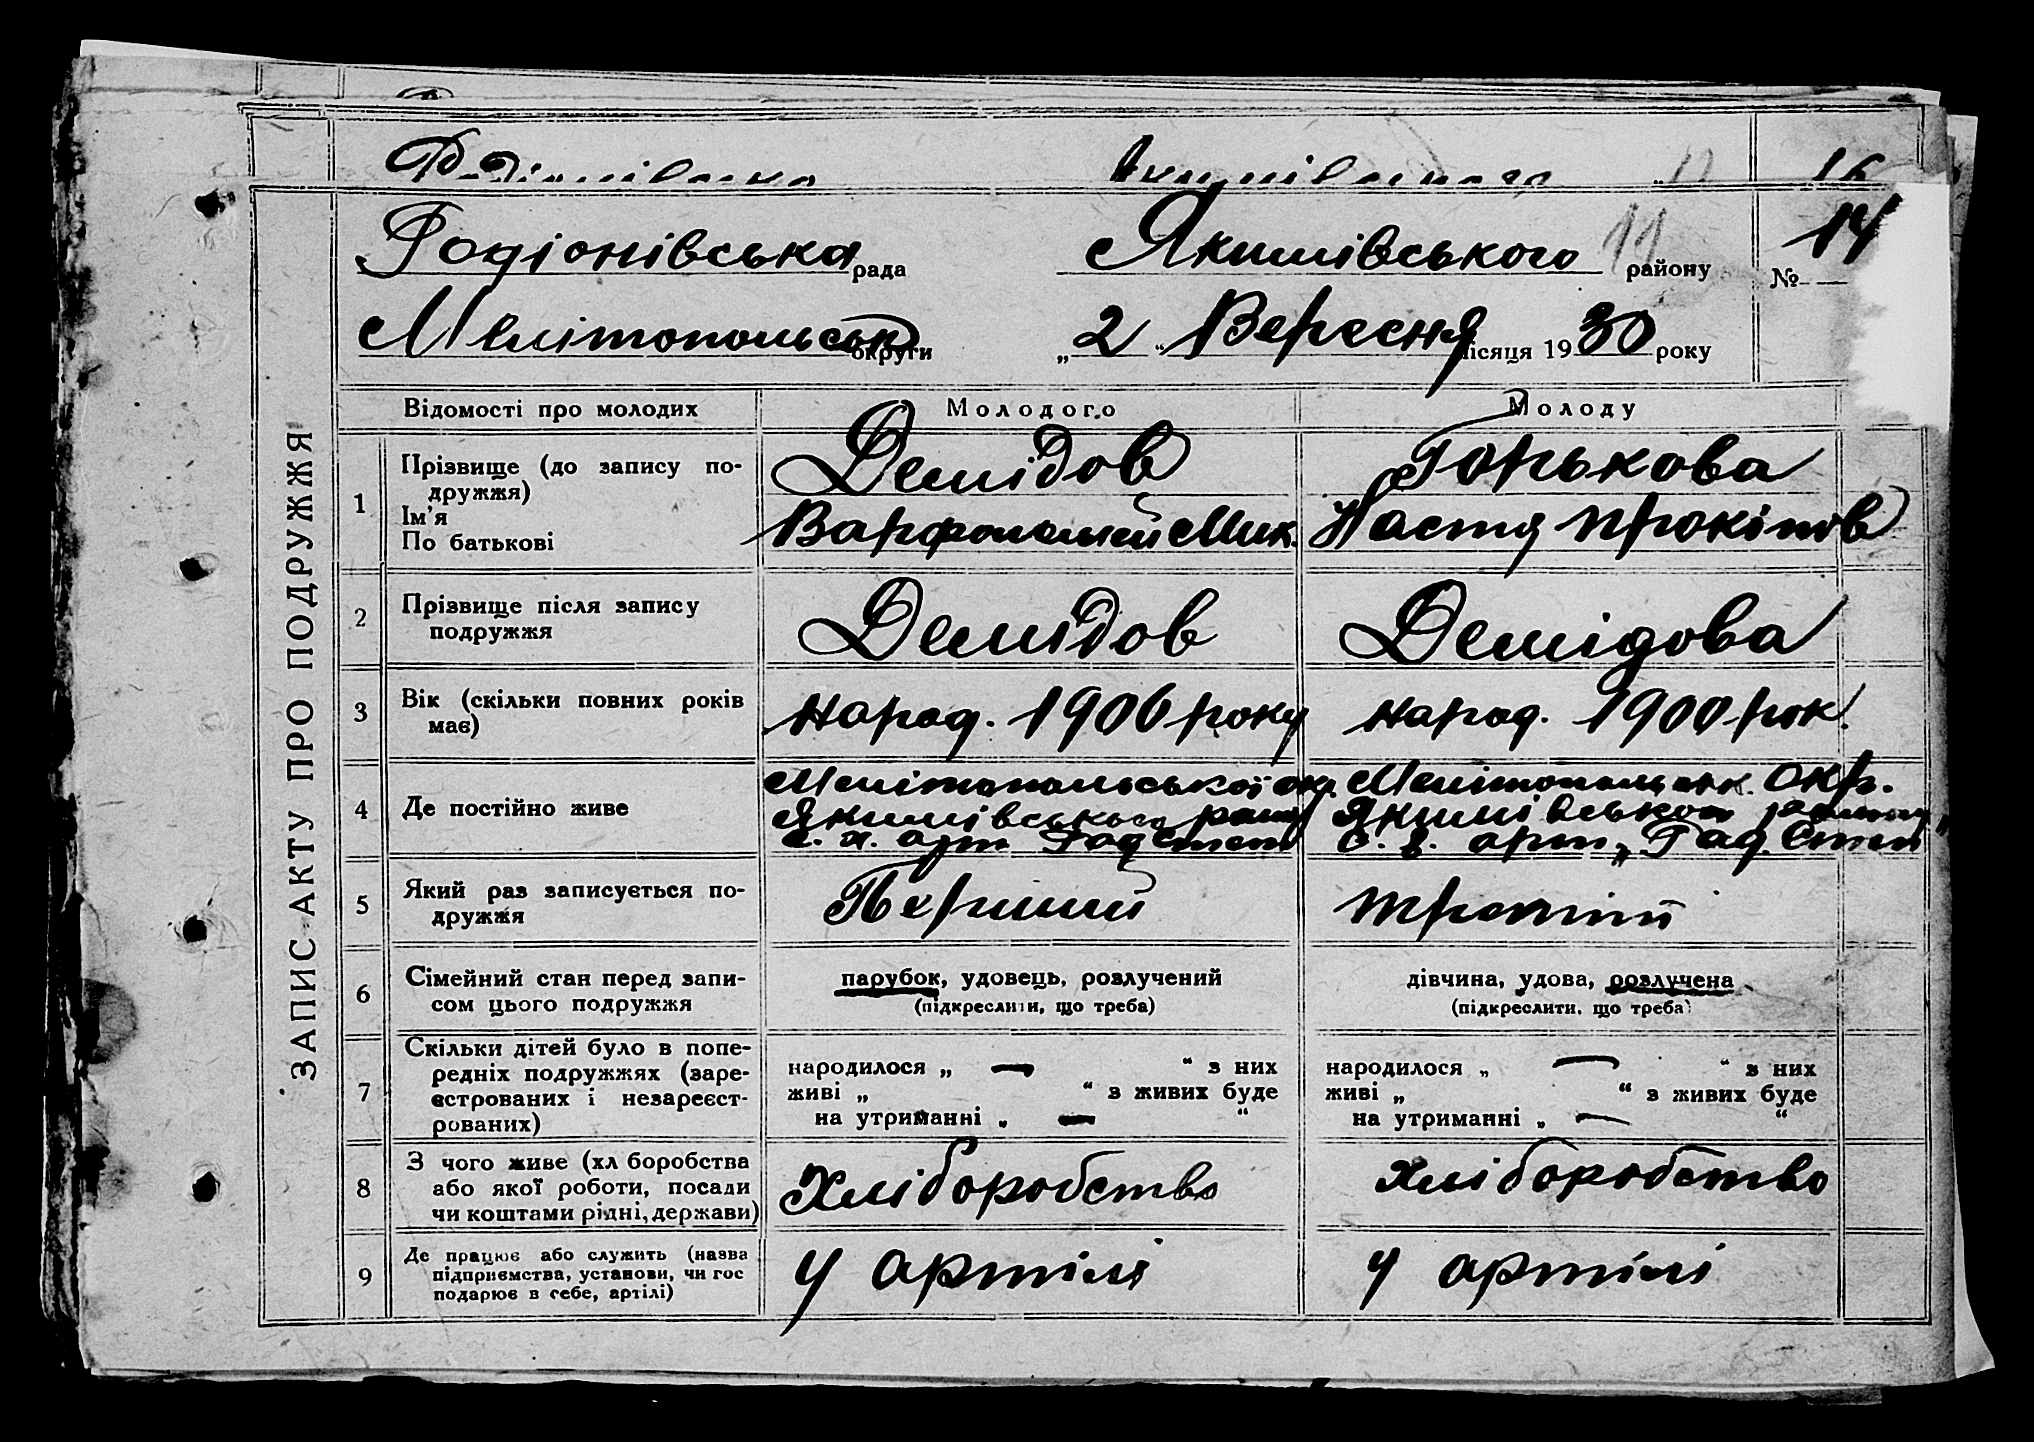 ЗАПИС АКТУ ПРО ПОДРУЖЖЯ
16
Родіонівська рада Якимівського 11 району № 14
Мелітопольськ округи „2“ Вересня місяця 1930 року
Відомості про молодих Молодого Молоду
1 Прізвище (до запису по-
дружжя)
Ім'я
По батькові
Демідов
Варфоломей Мик.
Горькова
Настя Прокіпов
2 Прізвище після запису
подружжя
Демідов
Демідова
3 Вік (скільки повних років
має)
народ. 1906 року
народ. 1900 рок.
4 Де постійно живе
Мелітопольської окр.
Якимівського райну
с. х. арт. Рад Степ
Мелітопольськ. Окр.
Якимівського району
с. г. арт. „Рад. Степ
5 Який раз записується по-
дружжя
Перший
третій
6 Сімейний стан перед запи-
сом цього подружжя
парубок, удовець, розлучений
(підкреслити, що треба)
дівчина, удова, розлучена
(підкреслити, що треба)
7 Скільки дітей було в попе-
редніх подружжях (заре-
єстрованих і незареєст-
рованих)
народилося „ — “ з них
живі „ “ з живих буде
на утриманні „ — “
народилося „ — “ з них
живі „ “ з живих буде
на утриманні „ — “
8 З чого живе (хліборобства
або якої роботи, посади
чи коштами рідні, держави)
Хліборобство
хліборобство
9 Де працює або служить (назва
підприємства, установи, чи гос
подарює в себе, артілі)
У артілі
У артілі